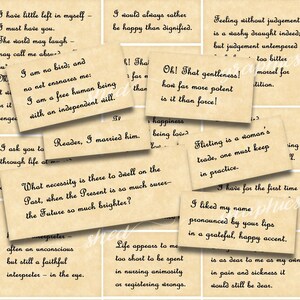 I have little left in myself –
I must have you.
The world may laugh –
may call me absurd,
I would always rather
be happy than dignified.
Feeling without judgement
is a washy draught indeed;
but judgement untempered
I am no bird; and
no net ensnares me:
I am a free human being
with an independent will.
Oh! That gentleness!
how far more potent
is it than force!
happiness
being loved
I ask you to
through life
Reader, I married him.
Flirting is a woman's
trade, one must keep
in practice.
What necessity is there to dwell on the
Past, when the Present is so much surer–
the Future so much brighter?
I have for the first time
I liked my name
pronounced by your lips
in a grateful, happy accent.
often an unconscious
but still a faithful
interpreter – in the eye.
Life appears to me
too short to be spent
in nursing animosity
or registering wrongs.
is as dear to me as my own
in pain and sickness
it would still be dear.